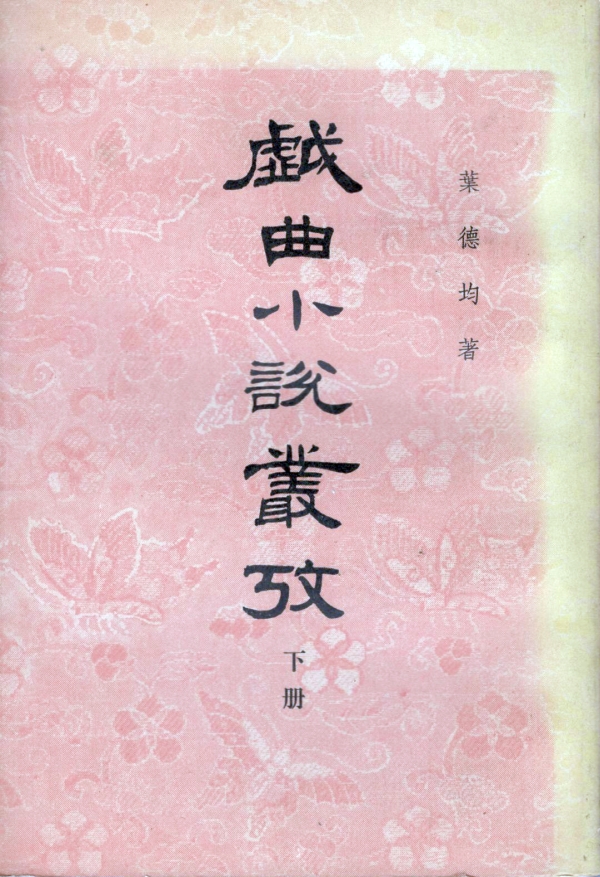 葉德均著
戯曲小説叢攷
下册